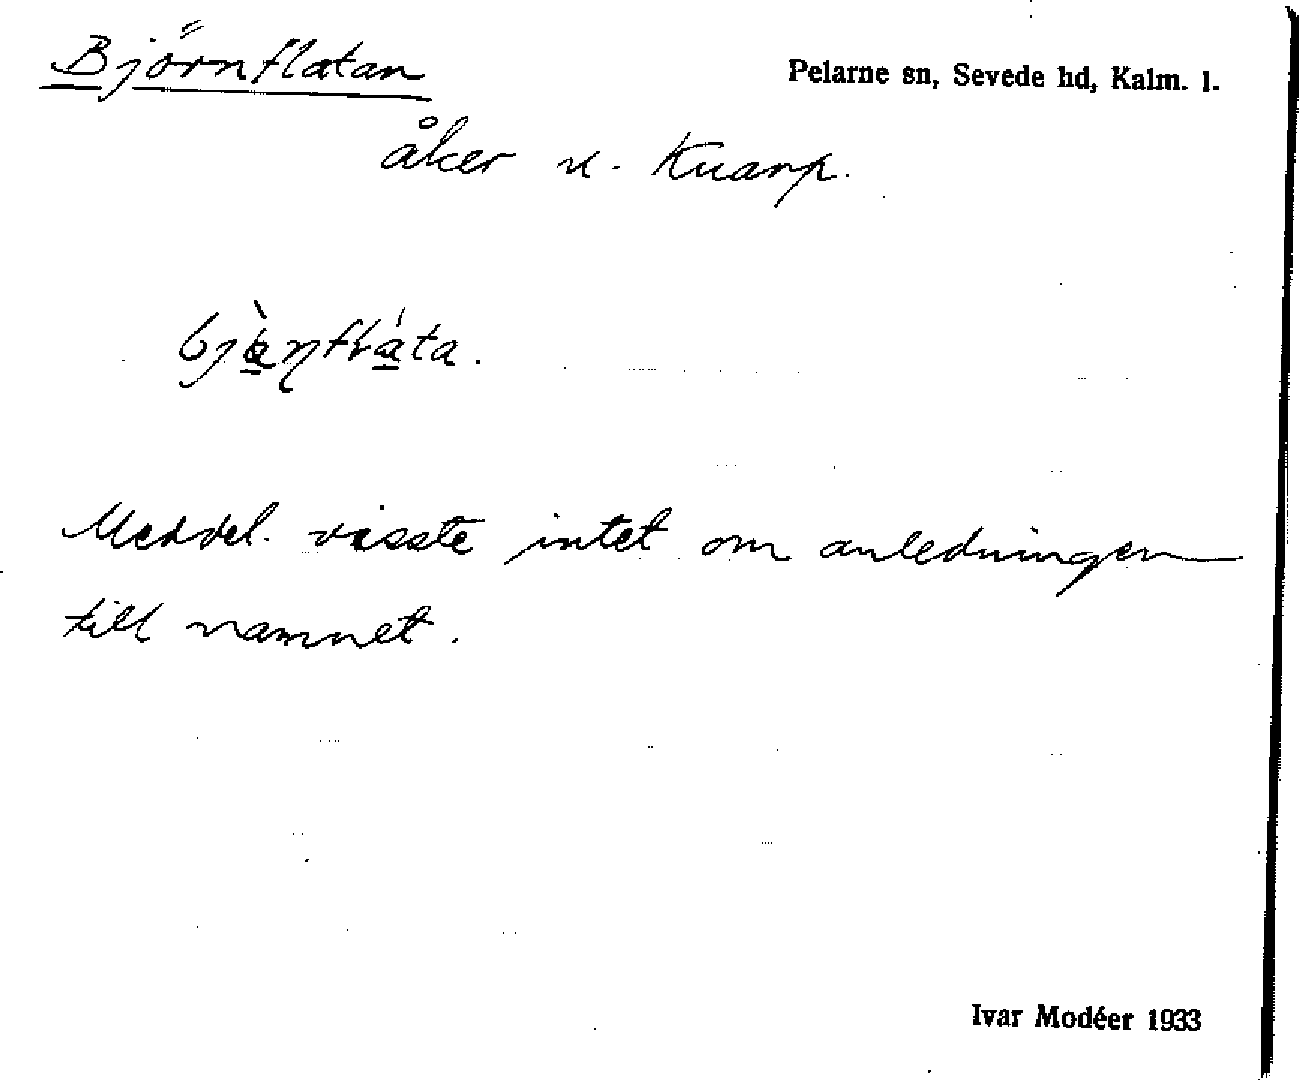 Björnflatan
Pelarne sn, Sevede hd, Kalm. l.
åker u. Knarp.
Meddel. visste intet om anledningen
till namnet.
Ivar Modéer 1933